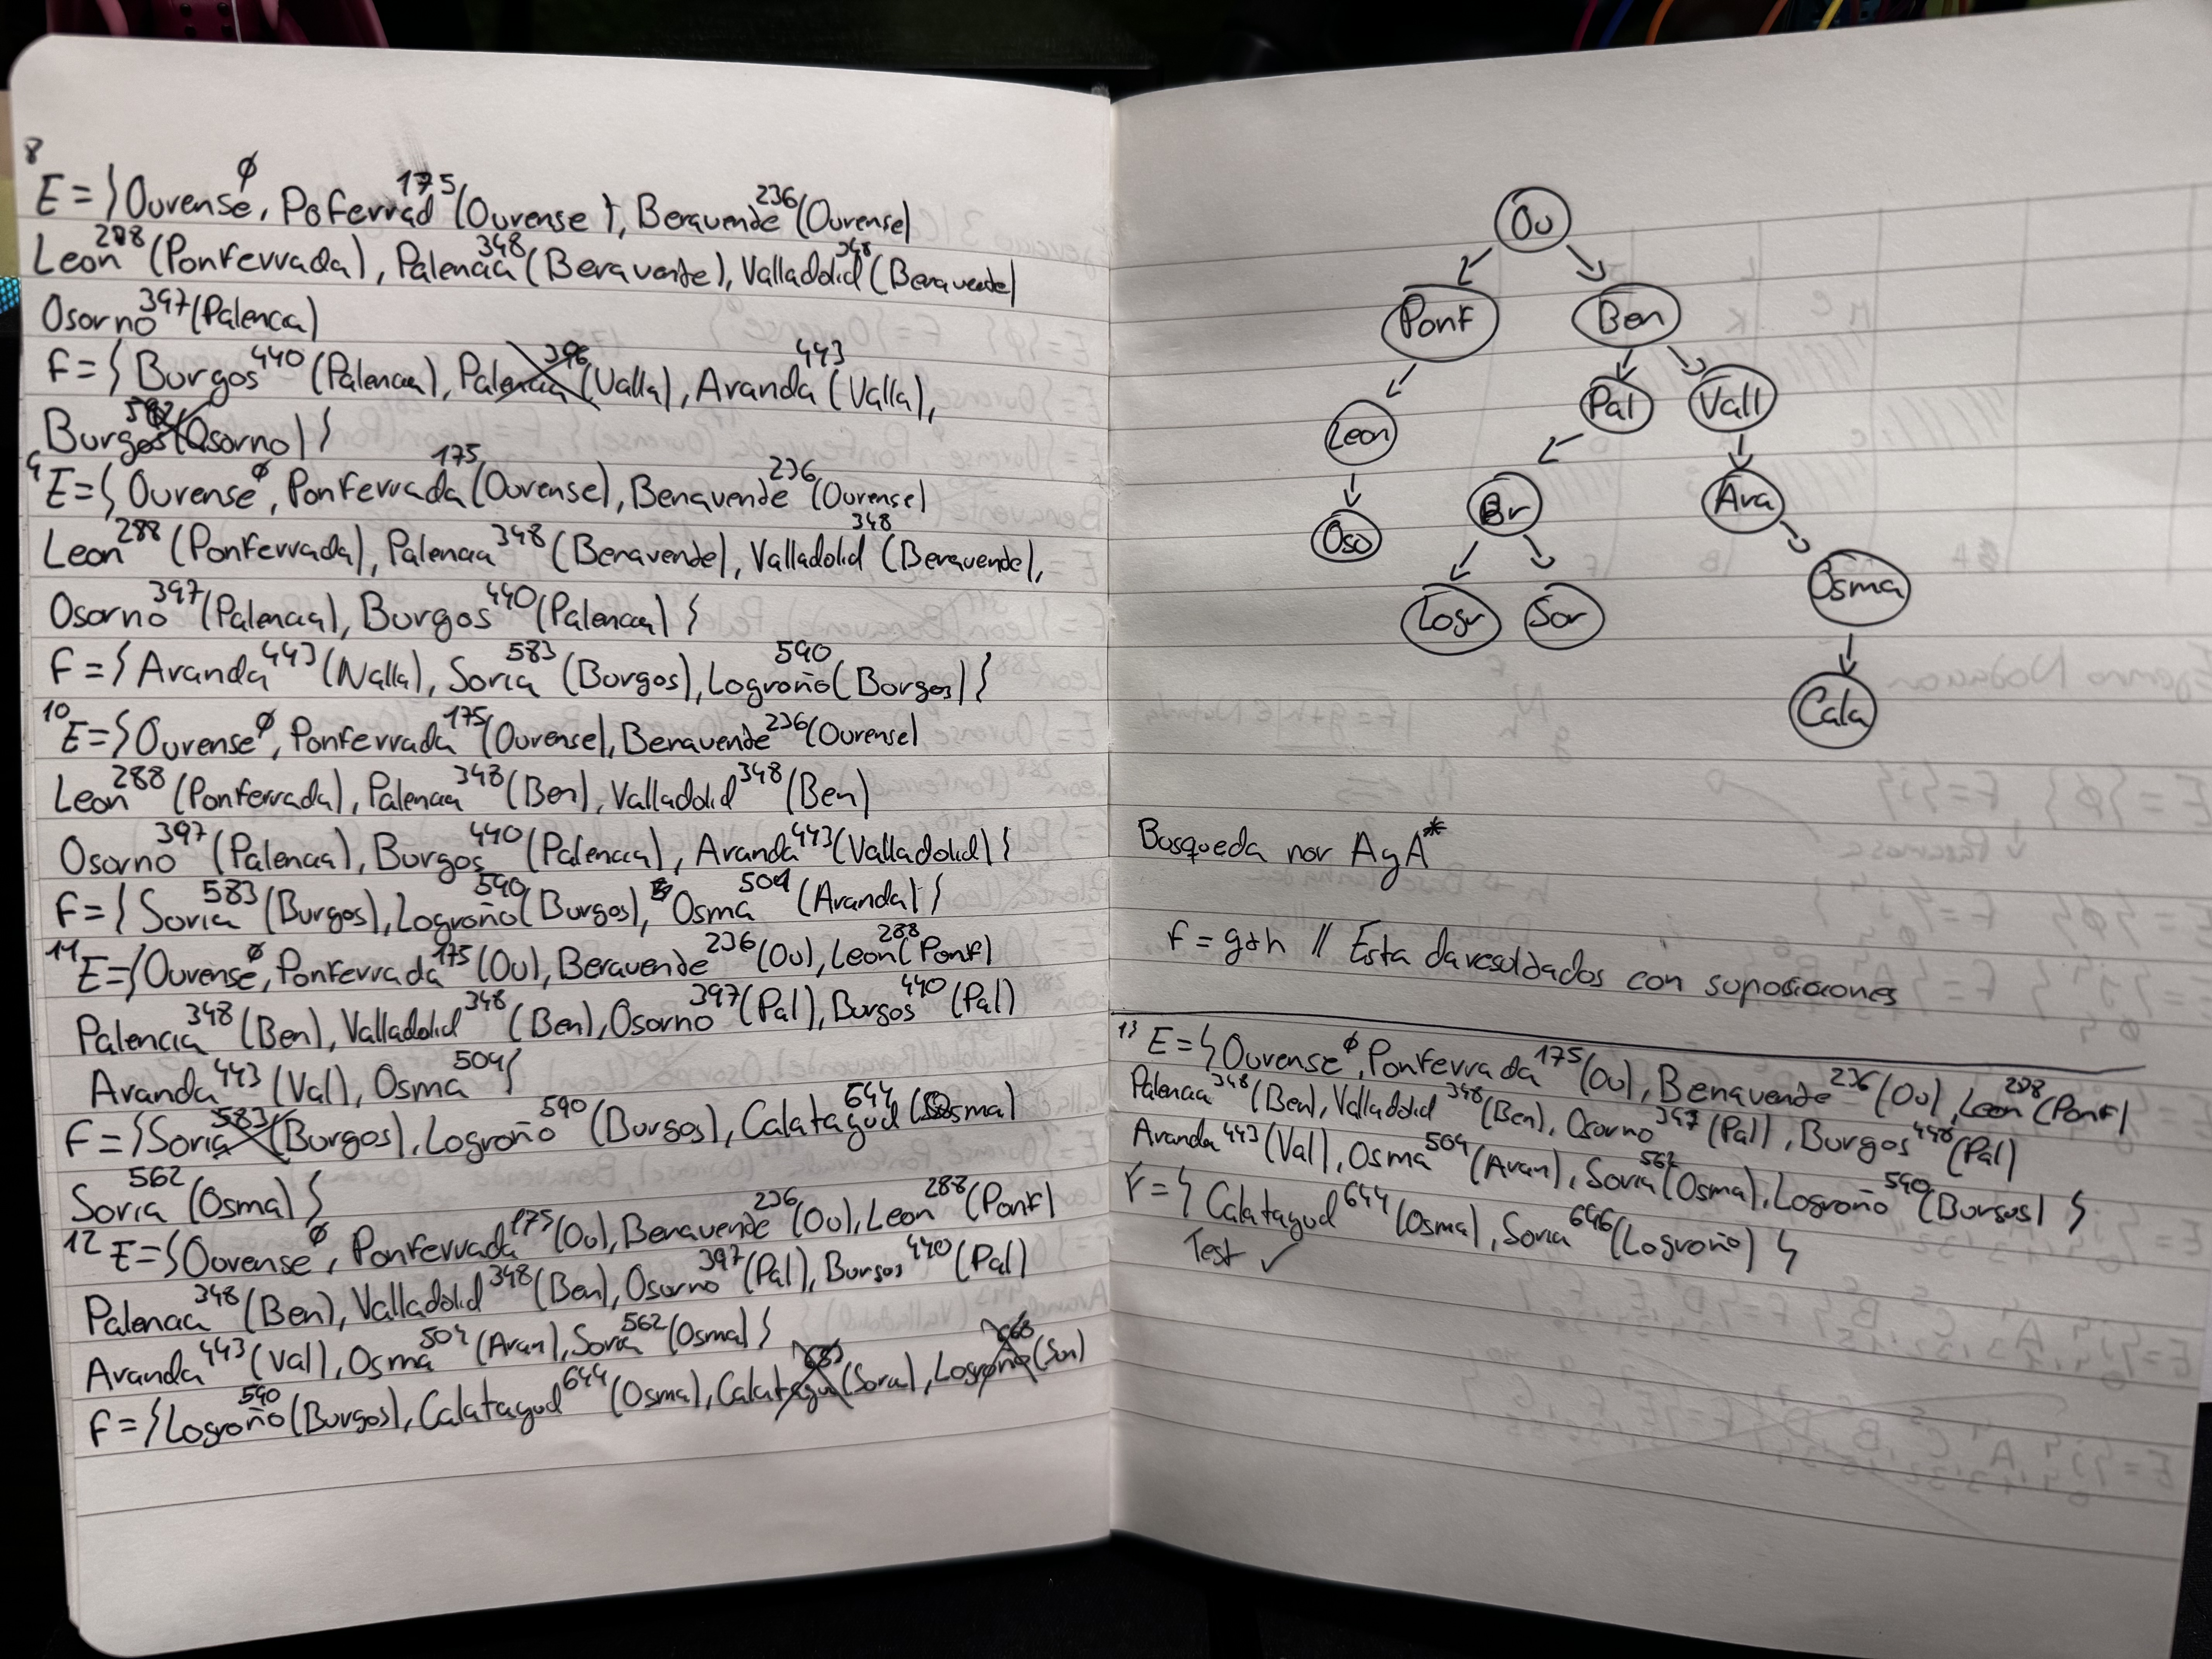 8
E = { Ourense ∅, Poferrad 175 (Ourense), Beravende 236 (Ourense)
Leon 288 (Ponferrada), Palencia 348 (Beravente), Valladolid 348 (Benavente)
Osorno 397 (Palenca)
F = { Burgos 440 (Palencia), Palencia 396 (Valla), Aranda 443 (Valla),
Burgos 592 (Osorno) }
9 E = { Ourense ∅, Ponferrada 175 (Ourense), Benavende 236 (Ourense)
Leon 288 (Ponferrada), Palencia 348 (Benavende), Valladolid 348 (Beravende),
Osorno 397 (Palencia), Burgos 440 (Palencia) }
F = { Aranda 443 (Valla), Soria 583 (Burgos), Logroño 590 (Borgos) }
10 E = { Ourense ∅, Ponferrada 175 (Ourense), Benavende 236 (Ourense)
Leon 288 (Ponferrada), Palencia 348 (Ben), Valladolid 348 (Ben)
Osorno 397 (Palencia), Burgos 440 (Palencia), Aranda 443 (Valladolid) }
F = { Soria 583 (Burgos), Logroño 590 (Burgos), Osma 504 (Aranda) }
11 E = { Ourense ∅, Ponferrada 175 (Ou), Beravende 236 (Ou), Leon 288 (Ponf)
Palencia 348 (Ben), Valladolid 348 (Ben), Osorno 397 (Pal), Burgos 440 (Pal)
Aranda 443 (Val), Osma 504 }
F = { Soria 583 (Burgos), Logroño 590 (Burgos), Calatagud 644 (Osma)
Soria 562 (Osma) }
12 E = { Ourense ∅, Ponferrada 175 (Ou), Benavende 236 (Ou), Leon 288 (Ponf)
Palencia 348 (Ben), Valladolid 348 (Ben), Osorno 397 (Pal), Burgos 440 (Pal)
Aranda 443 (Val), Osma 504 (Aran), Soria 562 (Osma) }
F = { Logroño 590 (Burgos), Calatagud 644 (Osma), Calatagu (Soria), Logroño 668 (Sori)
Ou
Ponf Ben
Leon Pal Vall
Oso Br Ara
Logr Sor Osma
Cala
Busqueda por A y A*
f = g+h // Esta da resoldados con suposiciones
13 E = { Ourense ∅, Ponferrada 175 (Ou), Benavende 236 (Ou), Leon 288 (Ponf)
Palencia 348 (Ben), Valladolid 348 (Ben), Osorno 397 (Pal), Burgos 440 (Pal)
Aranda 443 (Val), Osma 504 (Aran), Soria 562 (Osma), Logroño 590 (Burgos) }
F = { Calatagud 644 (Osma), Soria 696 (Logroño) }
Test ✓